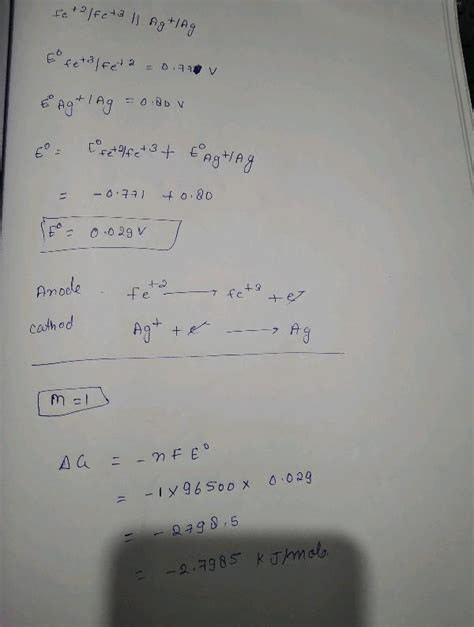 Fe+2/Fe+3 || Ag+/Ag
E° Fe+3/Fe+2 = 0.771 V
E° Ag+/Ag = 0.80 V
E° = E° Fe+2/Fe+3 + E° Ag+/Ag
= -0.771 + 0.80
E° = 0.029 V
Anode . Fe+2 → Fe+3 + e-
Cathod Ag+ + e- → Ag
n = 1
ΔG = -nFE°
= -1 x 96500 x 0.029
= -2798.5
= -2.7985 KJ/mol.